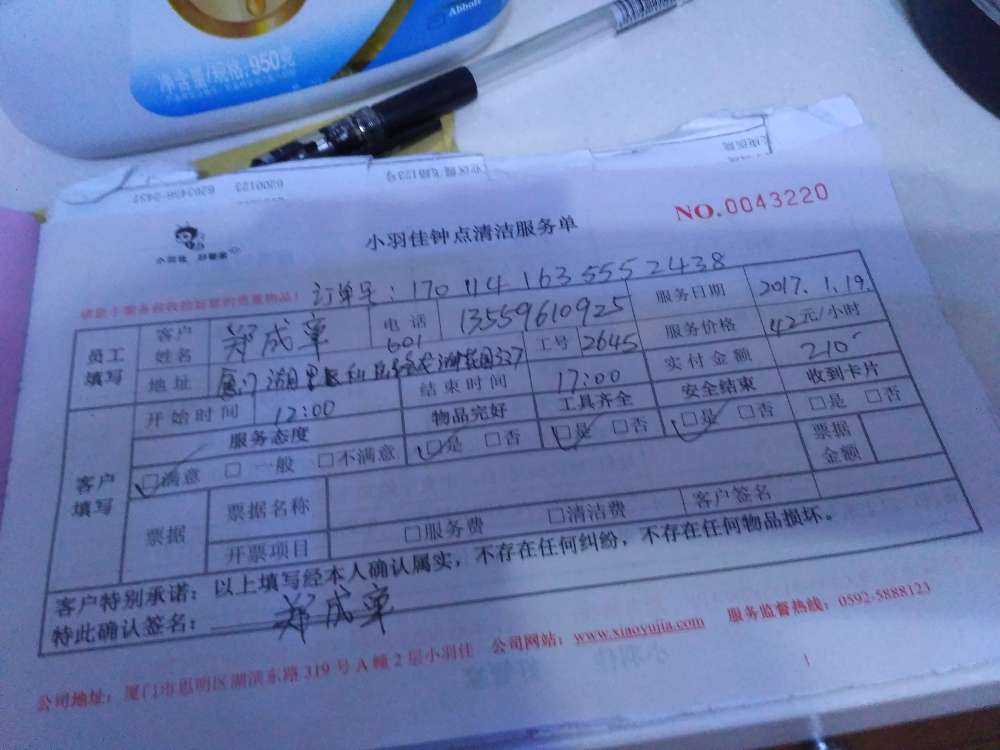 Abbott
净含量/规格:950克
6203456-2437 6200123
NO.0043220
小羽佳钟点清洁服务单
小羽佳 好管家
订单号:170114163555 2438
员工填写 客户姓名 郑成军 电话 13559610925 服务日期 2017.1.19.
地址 厦门湖里区 601 工号 2645 服务价格 42元/小时
开始时间 12:00 结束时间 17:00 实付金额 210
客户填写 服务态度 物品完好 工具齐全 安全结束 收到卡片
□满意 □一般 □不满意 □是 □否 □是 □否 □是 □否 □是 □否
票据 票据名称 票据金额
开票项目 □服务费 □清洁费 客户签名
客户特别承诺:以上填写经本人确认属实,不存在任何纠纷,不存在任何物品损坏。
特此确认签名: 郑成军
公司地址:厦门市思明区湖滨东路319号A幢2层小羽佳 公司网站:www.xiaoyujia.com 服务监督热线:0592-5888123
1